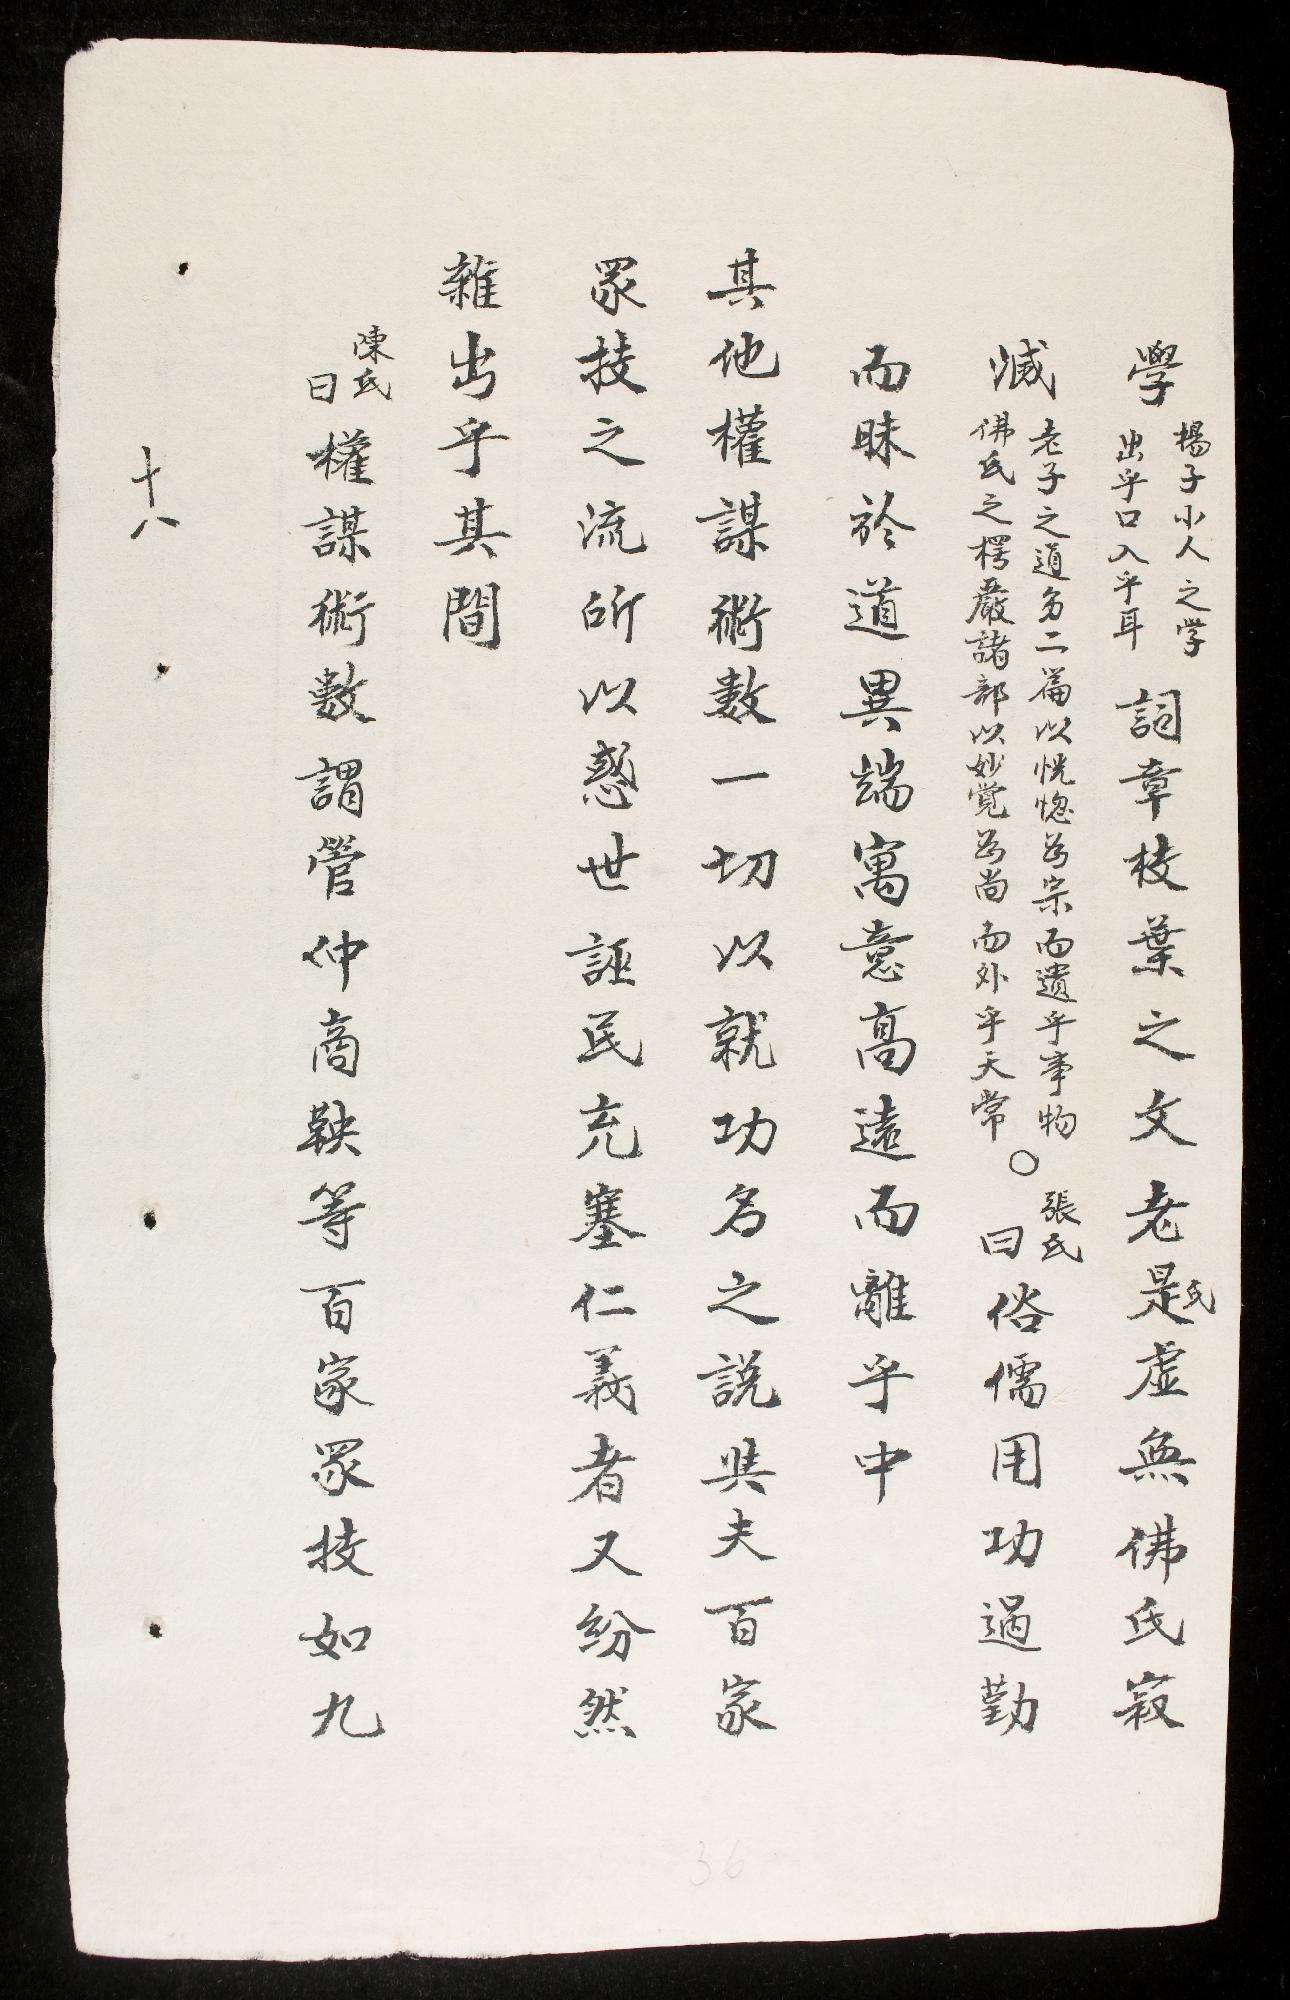 學楊子小人之学出乎口入乎耳詞章枝葉之文老是氏虛無佛氏寂
滅老子之道為二篇以恍惚為宗而遺乎事物佛氏之楞嚴諸部以妙覚為尚而外乎天常○張氏曰俗儒用功過勤
而昧於道異端寓意高遠而離乎中
其他權謀術數一切以就功名之說與夫百家
眾技之流所以惑世誣民充塞仁義者又紛然
雜出乎其間
陳氏曰權謀術數謂管仲商鞅等百家眾技如九
十八
36